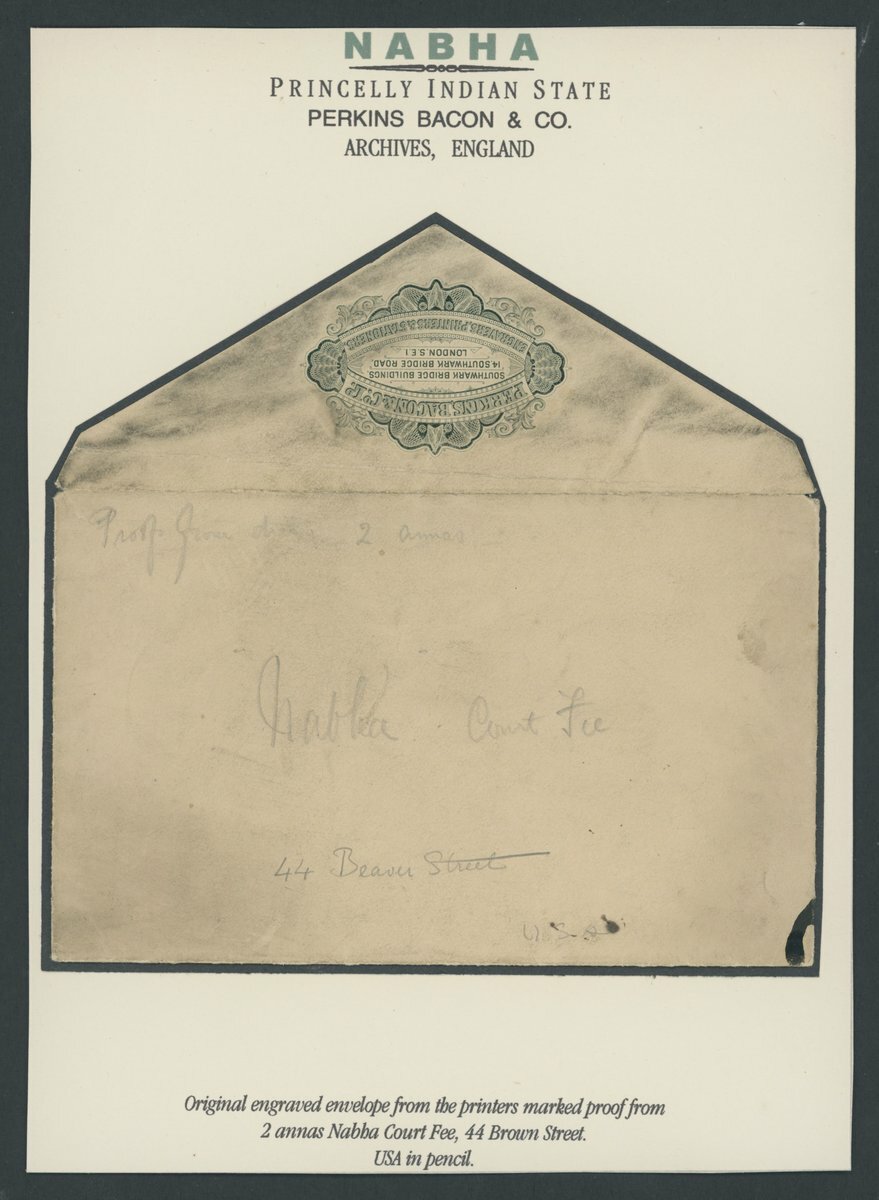 NABHA
PRINCELLY INDIAN STATE
PERKINS BACON & CO.
ARCHIVES, ENGLAND
PERKINS BACON & Co. Ld.
SOUTHWARK BRIDGE BUILDINGS,
14, SOUTHWARK BRIDGE ROAD,
LONDON, S.E.1
ENGRAVERS, PRINTERS & STATIONERS
Proof from 2 annas
Nabha Court Fee
44 Beaver Street
U.S.A
Original engraved envelope from the printers marked proof from
2 annas Nabha Court Fee, 44 Brown Street.
USA in pencil.